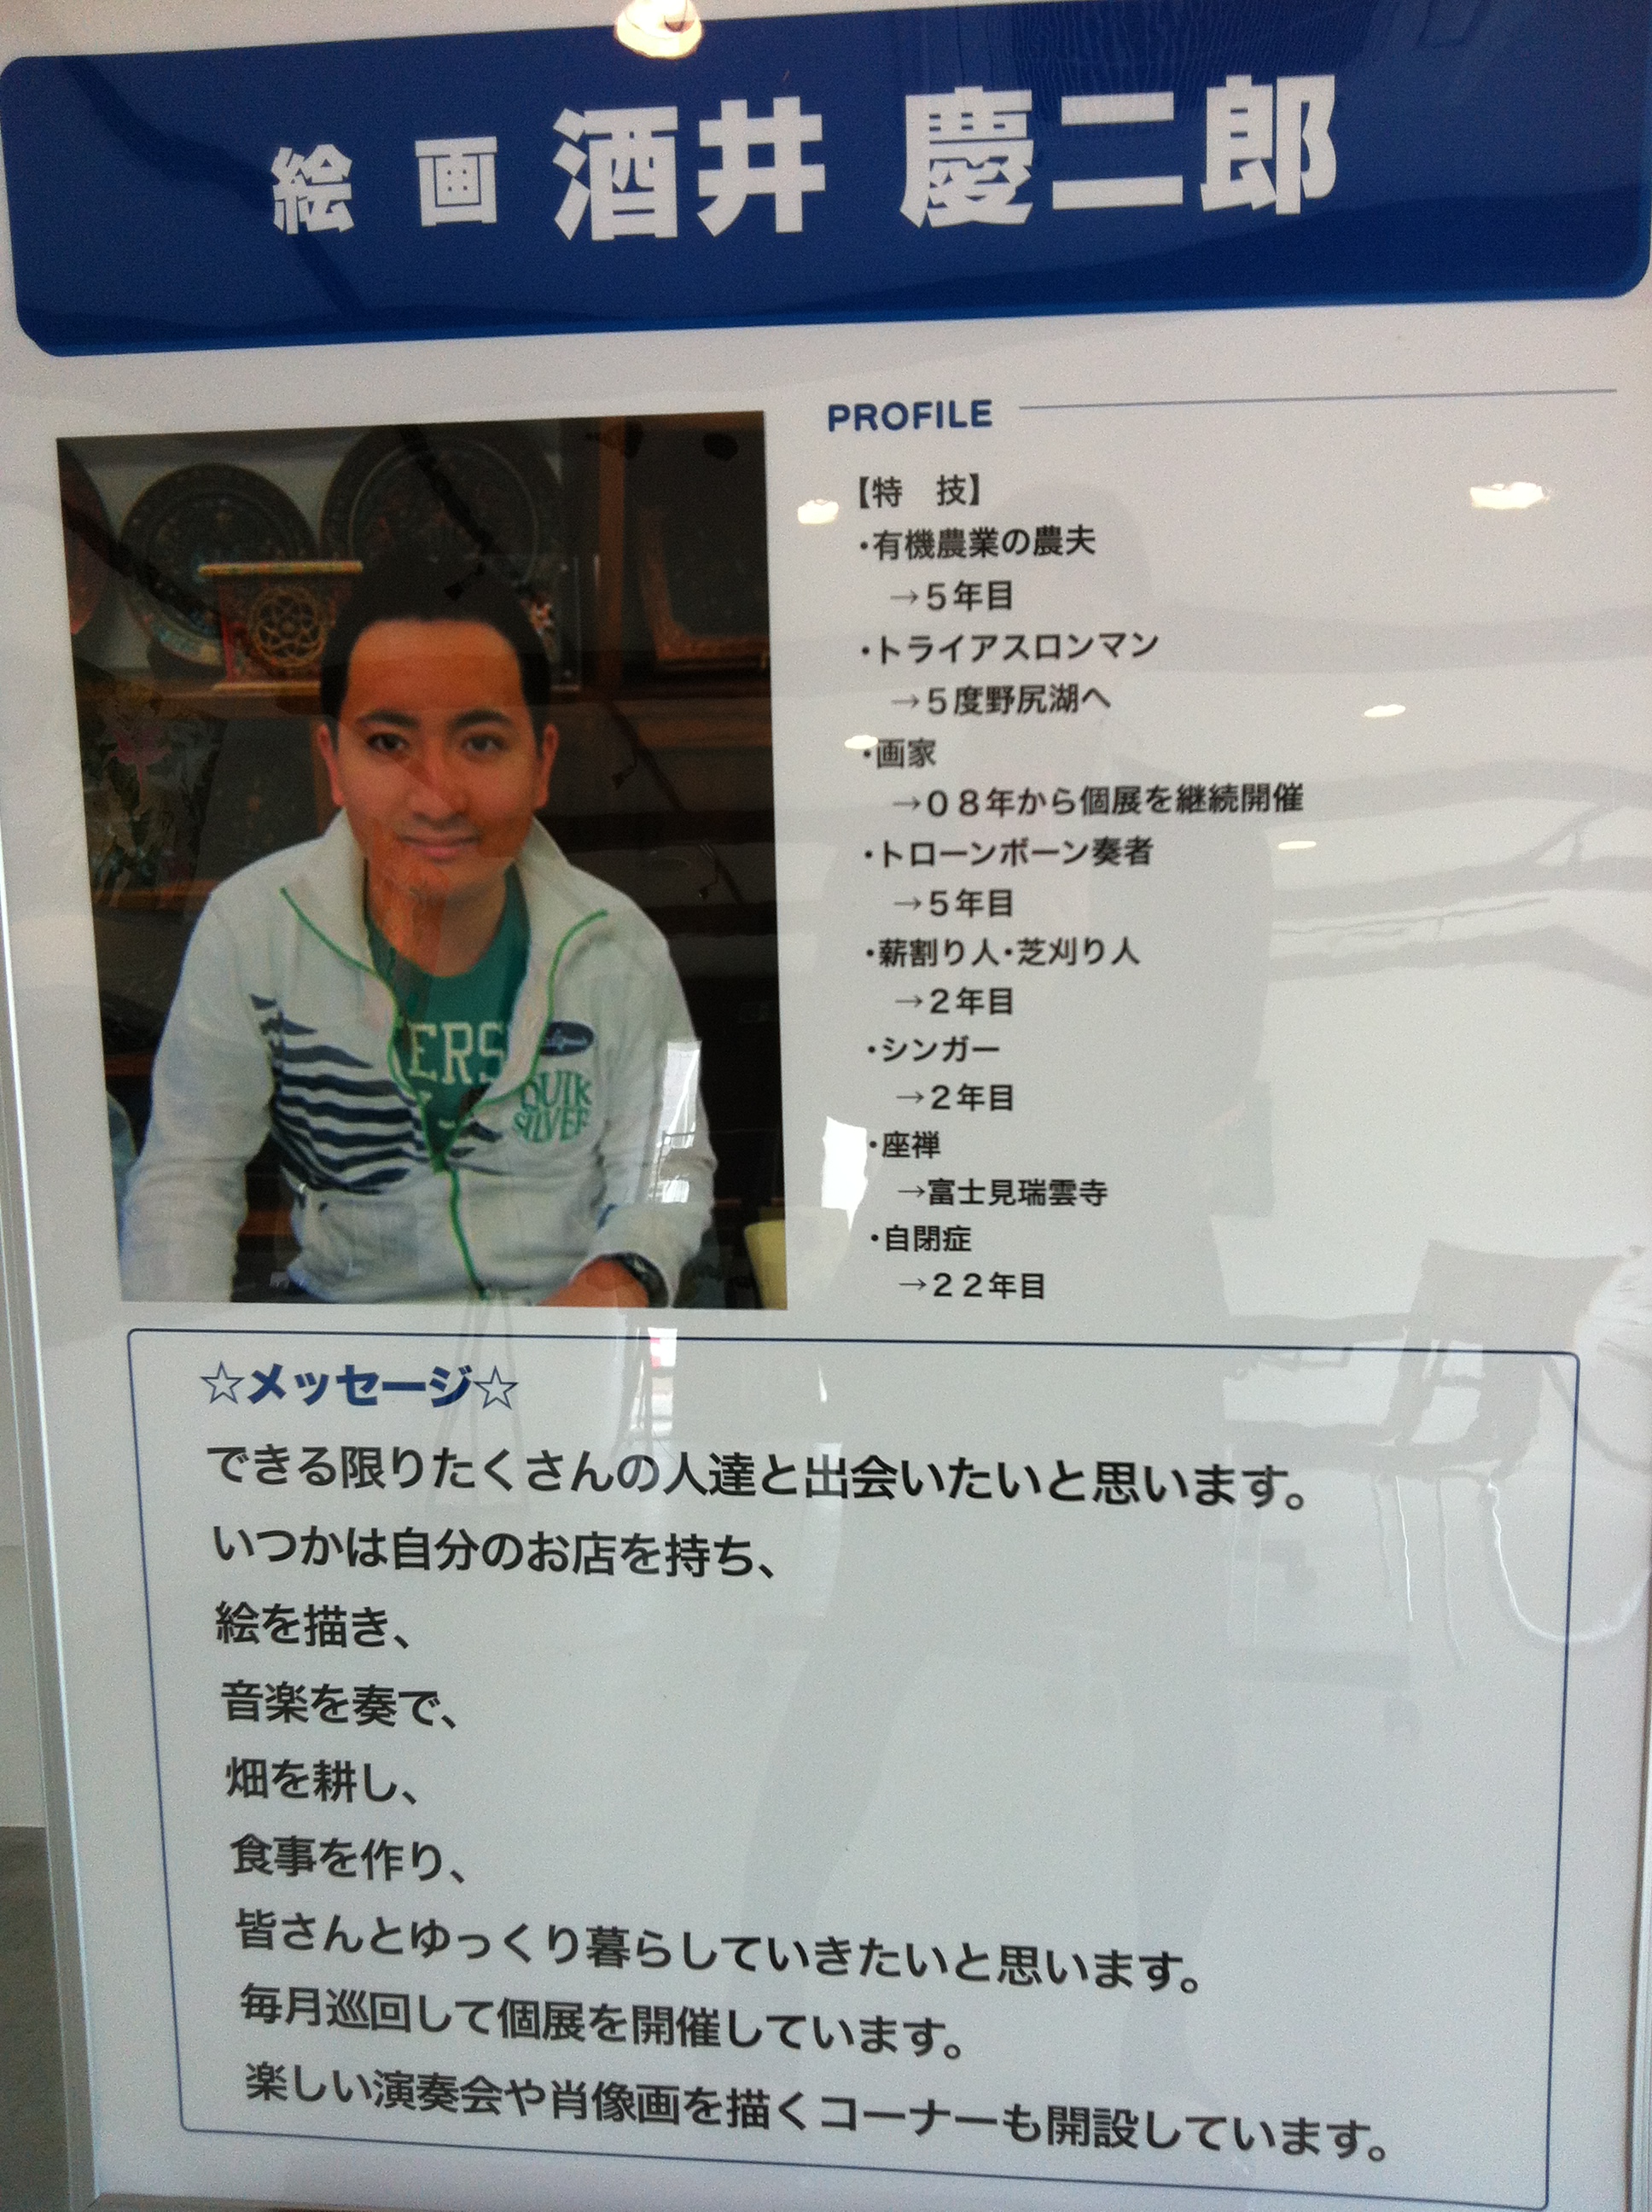 絵 画 酒井 慶二郎
PROFILE
【特　技】
・有機農業の農夫
→５年目
・トライアスロンマン
→５度野尻湖へ
・画家
→０８年から個展を継続開催
・トローンボーン奏者
→５年目
・薪割り人・芝刈り人
→２年目
・シンガー
→２年目
・座禅
→富士見瑞雲寺
・自閉症
→２２年目
ERS
QUIK
SILVER
☆メッセージ☆
できる限りたくさんの人達と出会いたいと思います。
いつかは自分のお店を持ち、
絵を描き、
音楽を奏で、
畑を耕し、
食事を作り、
皆さんとゆっくり暮らしていきたいと思います。
毎月巡回して個展を開催しています。
楽しい演奏会や肖像画を描くコーナーも開設しています。